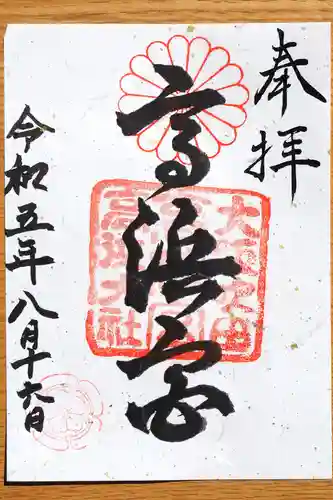 奉拝
高浜宮
令和五年八月十六日